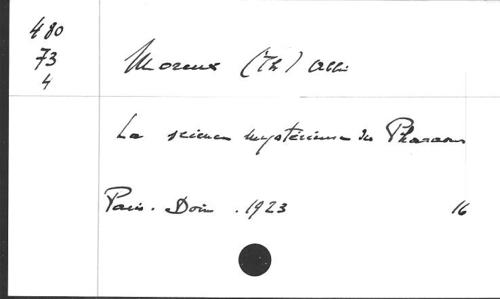 480
73
4
Moreux (Th) Abbé
La science mystérieuse des Pharaons
Paris. Doin. 1923 16